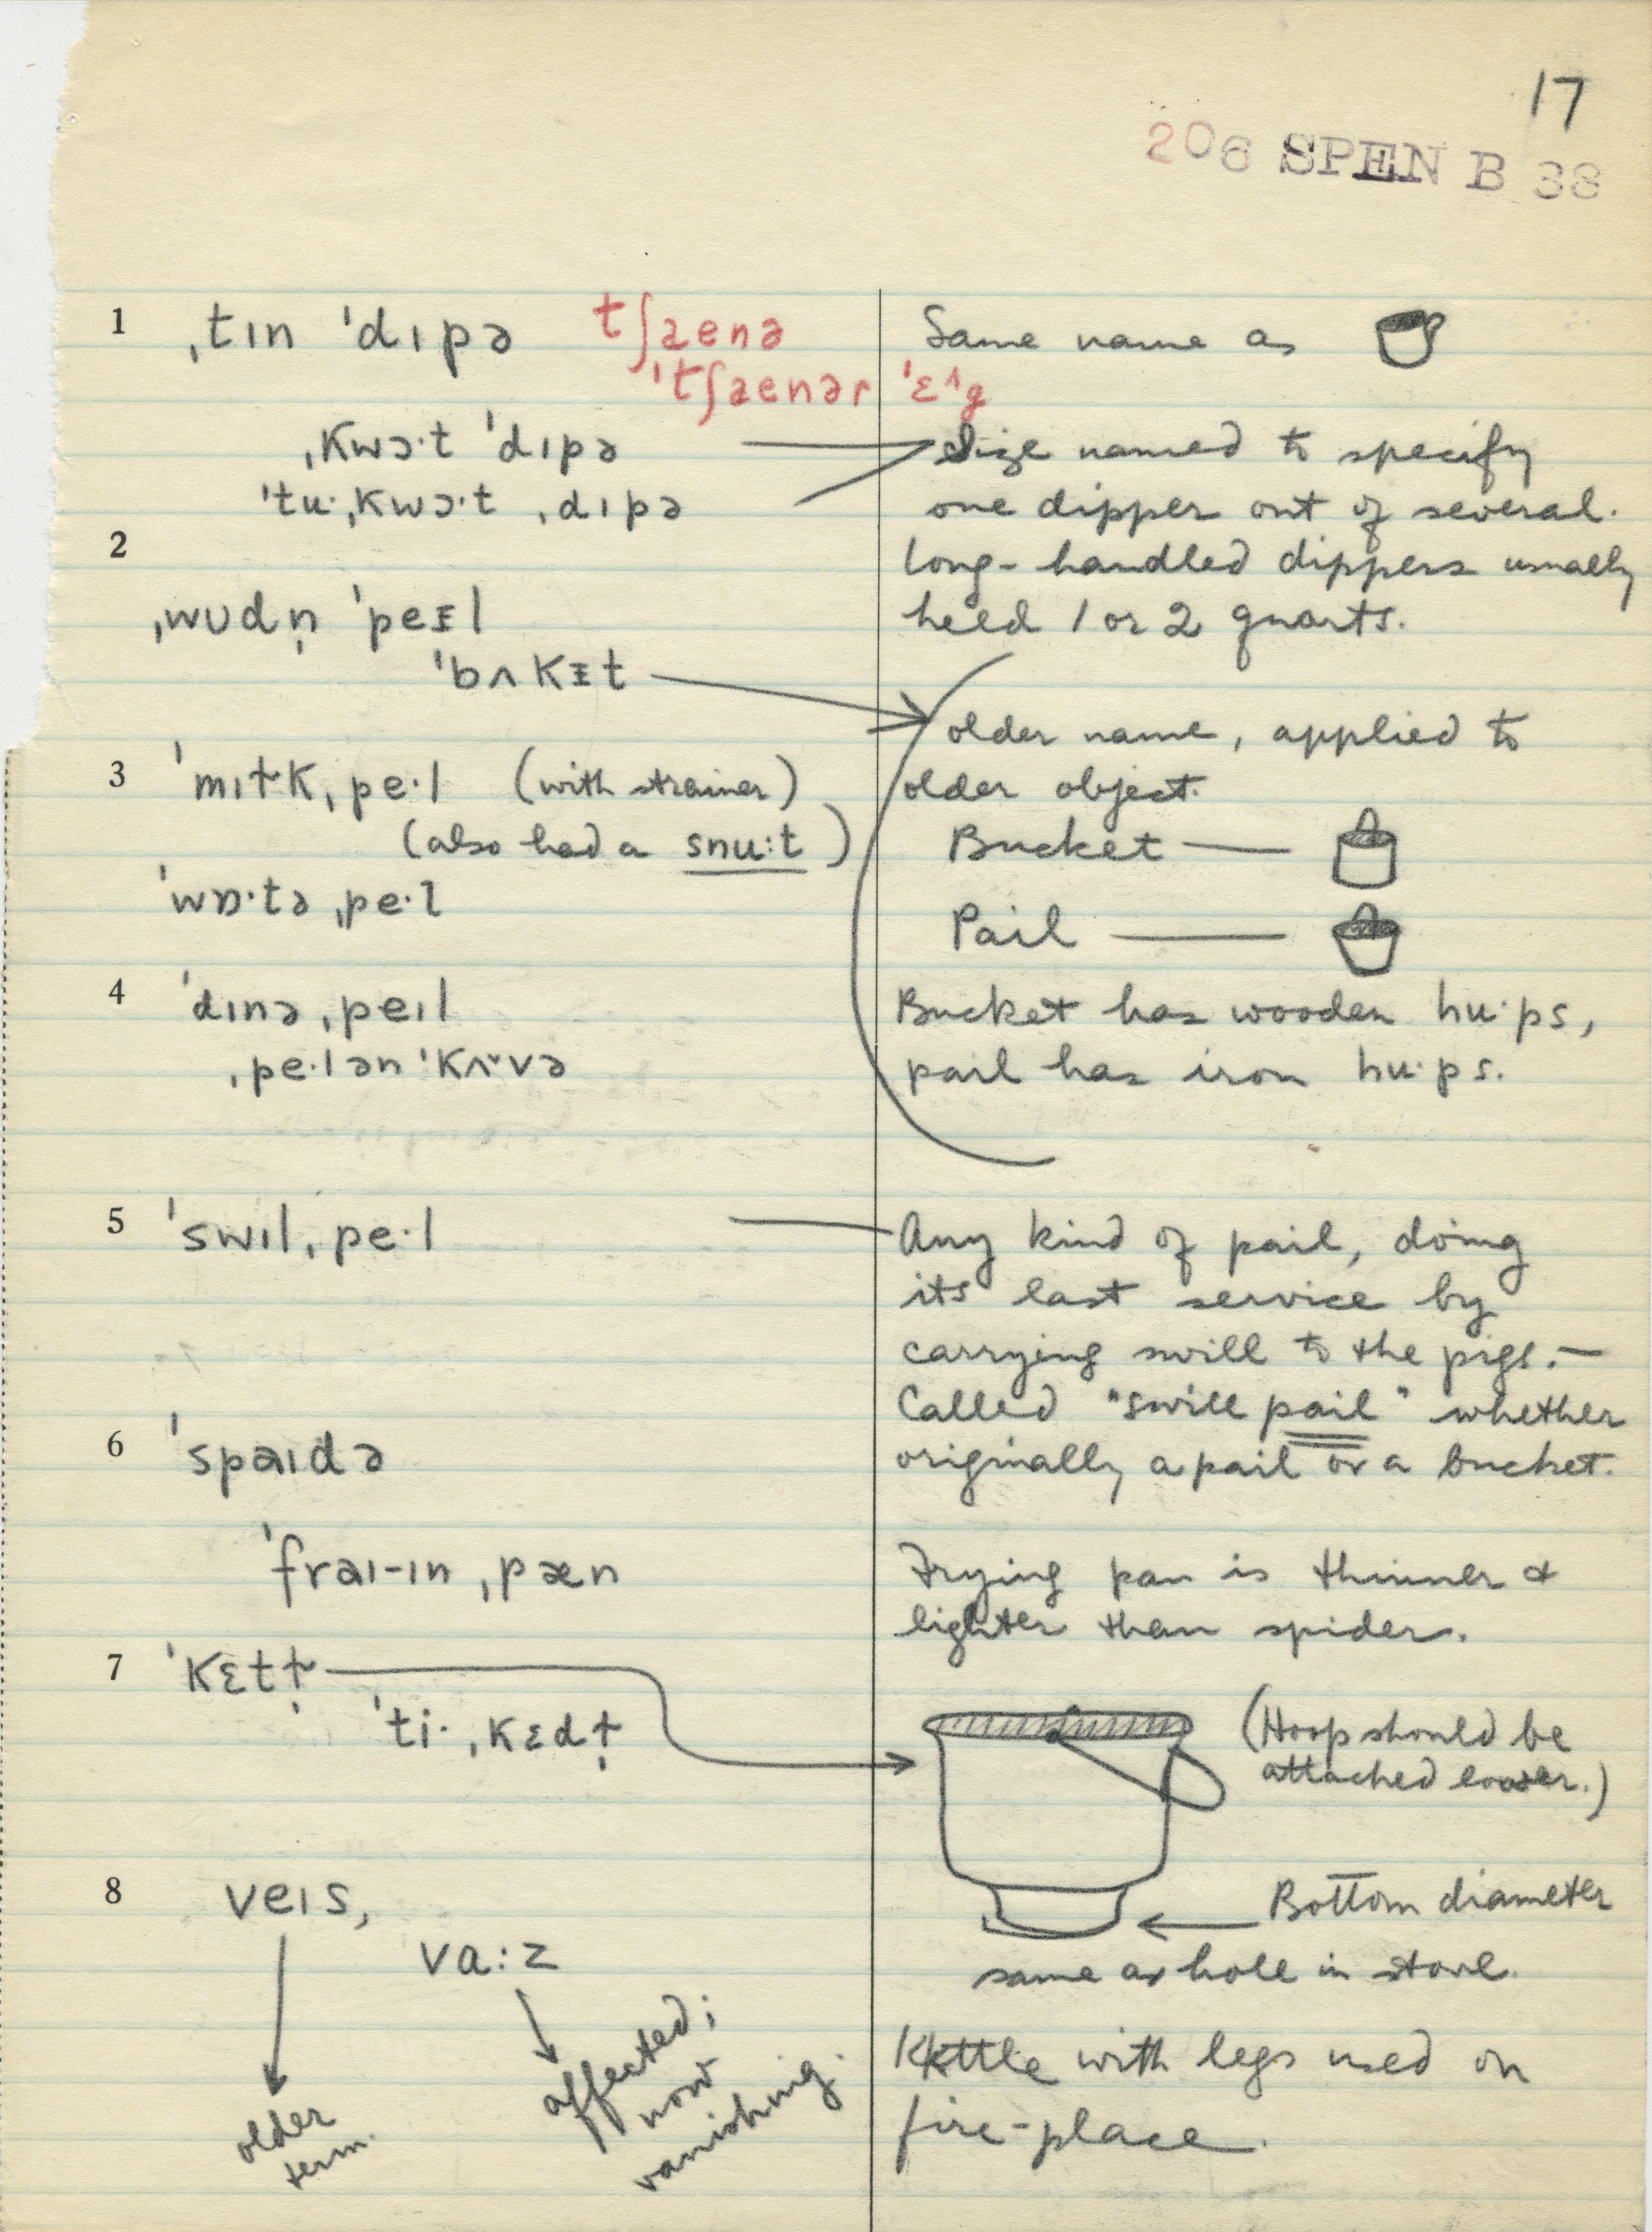 17
206 SPEN B 38
1 ˌtɪn ˈdɪpə tʃænə Same name as
ˈtʃænər ˈɛ^g
ˌkwɔ·t ˈdɪpə Size named to specify
ˈtu·ˌkwɔ·t ˌdɪpə one dipper out of several.
2 Long-handled dippers usually
ˌwʊdn̩ ˈpeɪl held 1 or 2 quarts.
ˈbʌkɪt
older name, applied to
3 ˈmɪɫkˌpe·l (with strainer) older object.
(also had a snu:t) Bucket —
ˈwɒ·tə ˌpe·l
Pail —
4 ˈdɪnə ˌpeɪl Bucket has wooden hu·ps,
ˌpe·lən ˈkʌvə pail has iron hu·ps.
5 ˈswɪlˌpe·l Any kind of pail, doing
its last service by
carrying swill to the pigs.—
Called "swill pail" whether
6 ˈspaɪdə originally a pail or a bucket.
ˈfraɪ-ɪn ˌpæn Frying pan is thinner &
lighter than spider.
7 ˈkɛtɫ̩
ˈti· ˌkɛdɫ̩ (Hoop should be
attached lower.)
8 veɪs, Bottom diameter
va:z same as hole in stove.
older term.
affected; now vanishing.
Kettle with legs used on
fire-place.